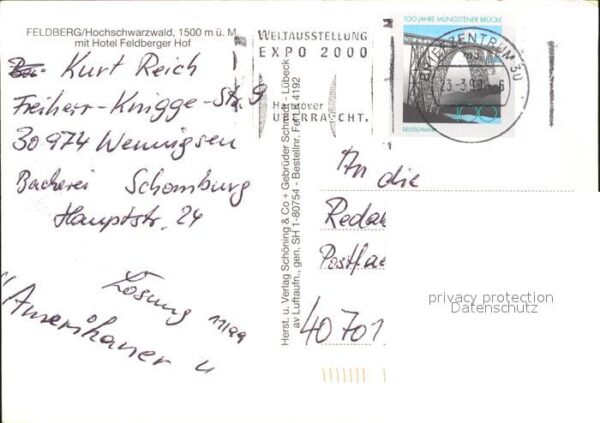 FELDBERG/Hochschwarzwald, 1500 m ü. M.
mit Hotel Feldberger Hof
Kurt Reich
Freiherr-Knigge-Str. 9
30974 Wennigsen
Bäckerei Schomburg
Hauptstr. 24
Lösung 11/99
"Amerikaner"
Herst. u. Verlag Schöning & Co + Gebrüder Schmidt - Lübeck
av Luftaufn., gen. SH 1-80754 - Bestellnr. Fel LK 4192
WELTAUSSTELLUNG
EXPO 2000
Hannover
ÜBERRASCHT.
100 JAHRE MÜNGSTENER BRÜCKE
DEUTSCHLAND
100
BRIEFZENTRUM 30
23.3.99
An die
Redak
Postfac
40701
privacy protection
Datenschutz